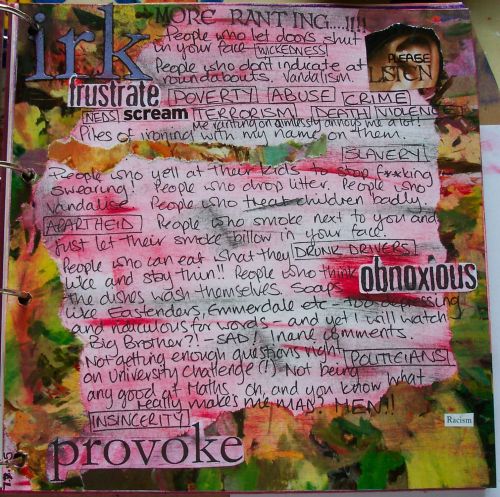 irk
MORE RANTING...!!!!
- People who let doors shut
in your face WICKEDNESS
People who dont indicate at
roundabouts. Vandalism.
PLEASE
LISTEN
frustrate POVERTY ABUSE CRIME
NEDS scream TERRORISM DEATH VIOLENCE
me ranting on aimlessly annoys me a lot!
Piles of ironing with my name on them.
SLAVERY
People who yell at their kids to stop f**king
swearing! People who drop litter. People who
Vandalise. People who treat children badly
APARTHEID People who smoke next to you and
just let their smoke billow in your face.
People who can eat what they DRUNK DRIVERS
like and stay thin!! People who think
obnoxious
the dishes wash themselves. Soaps
like Eastenders, Emmerdale etc - too depressing
and ridiculous for words - and yet I will watch
Big Brother?! - SAD! Inane comments.
Not getting enough questions right POLITICIANS
on University Challenge (!) Not being
any good at Maths. Oh, and you know what
really makes me MAD? MEN!!
INSINCERITY
Racism
provoke